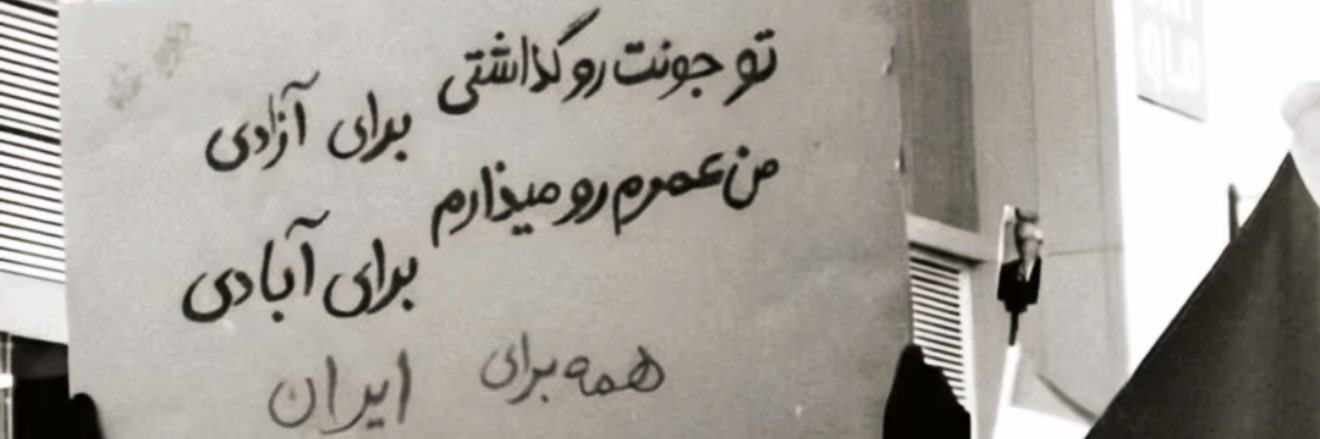 تو جونت رو گذاشتی برای آزادی
من عمرم رو میذارم برای آبادی
همه برای ایران